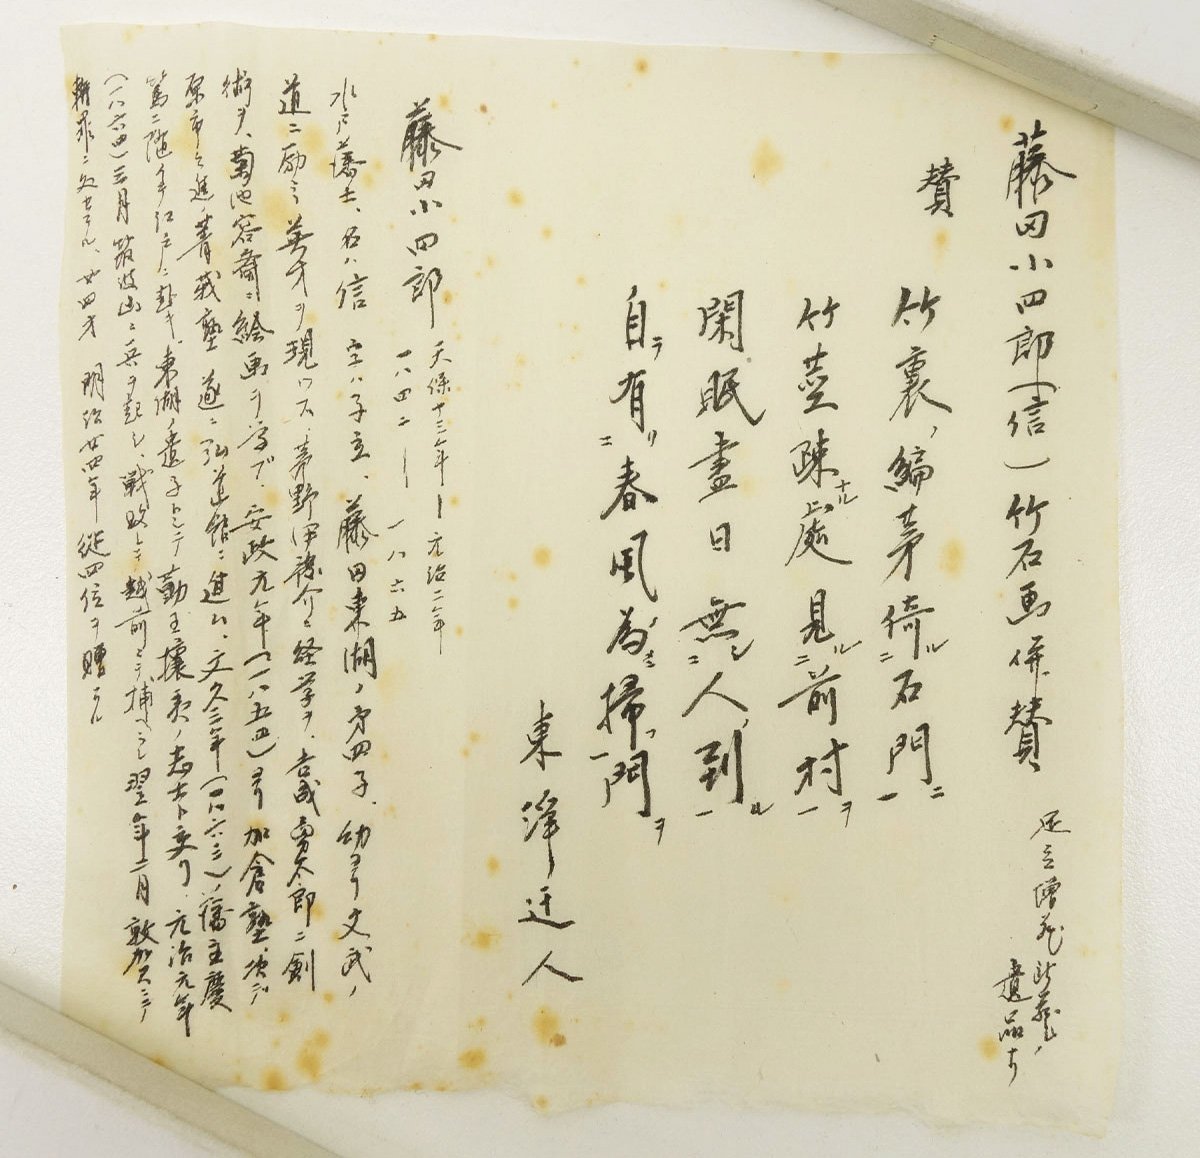 藤田小四郎(信)竹石画併賛
遺品ナリ
賛
竹裏ノ編茅倚ル二石門ニ一
竹莖疎ナル處見ル二前村ヲ一
閑眠盡日無シ二人ノ到ル一
自ラ有リ二春風ノ為ニ掃フ一レ門ヲ
東澤迂人
藤田小四郎 天保十三年ー元治二年
一八四二ー一八六五
水戸藩士、名ハ信 字ハ子立、藤田東湖ノ第四子、幼ヨリ文武ノ
道ニ励ミ英才ヲ現ワス、茅野伊豫介ニ経学ヲ、吉成勇太郎ニ劍
術ヲ、菊池容斎ニ絵画ヲ学ブ、安政元年(一八五四)ヨリ加倉塾、次デ
原市之進ノ菁莪塾、遂ニ弘道館ニ進ム、文久三年(一八六三)藩主慶
篤ニ随イ江戸ニ赴キ、東湖ノ遺子トシテ勤王攘夷ノ志士ト交リ、元治元年
(一八六四)三月筑波山ニ兵ヲ起シ、戦敗レテ越前ニテ捕ワレ翌年二月敦賀ニテ
斬罪ニ処セラル、廿四才 明治廿四年 従四位ヲ贈ラル